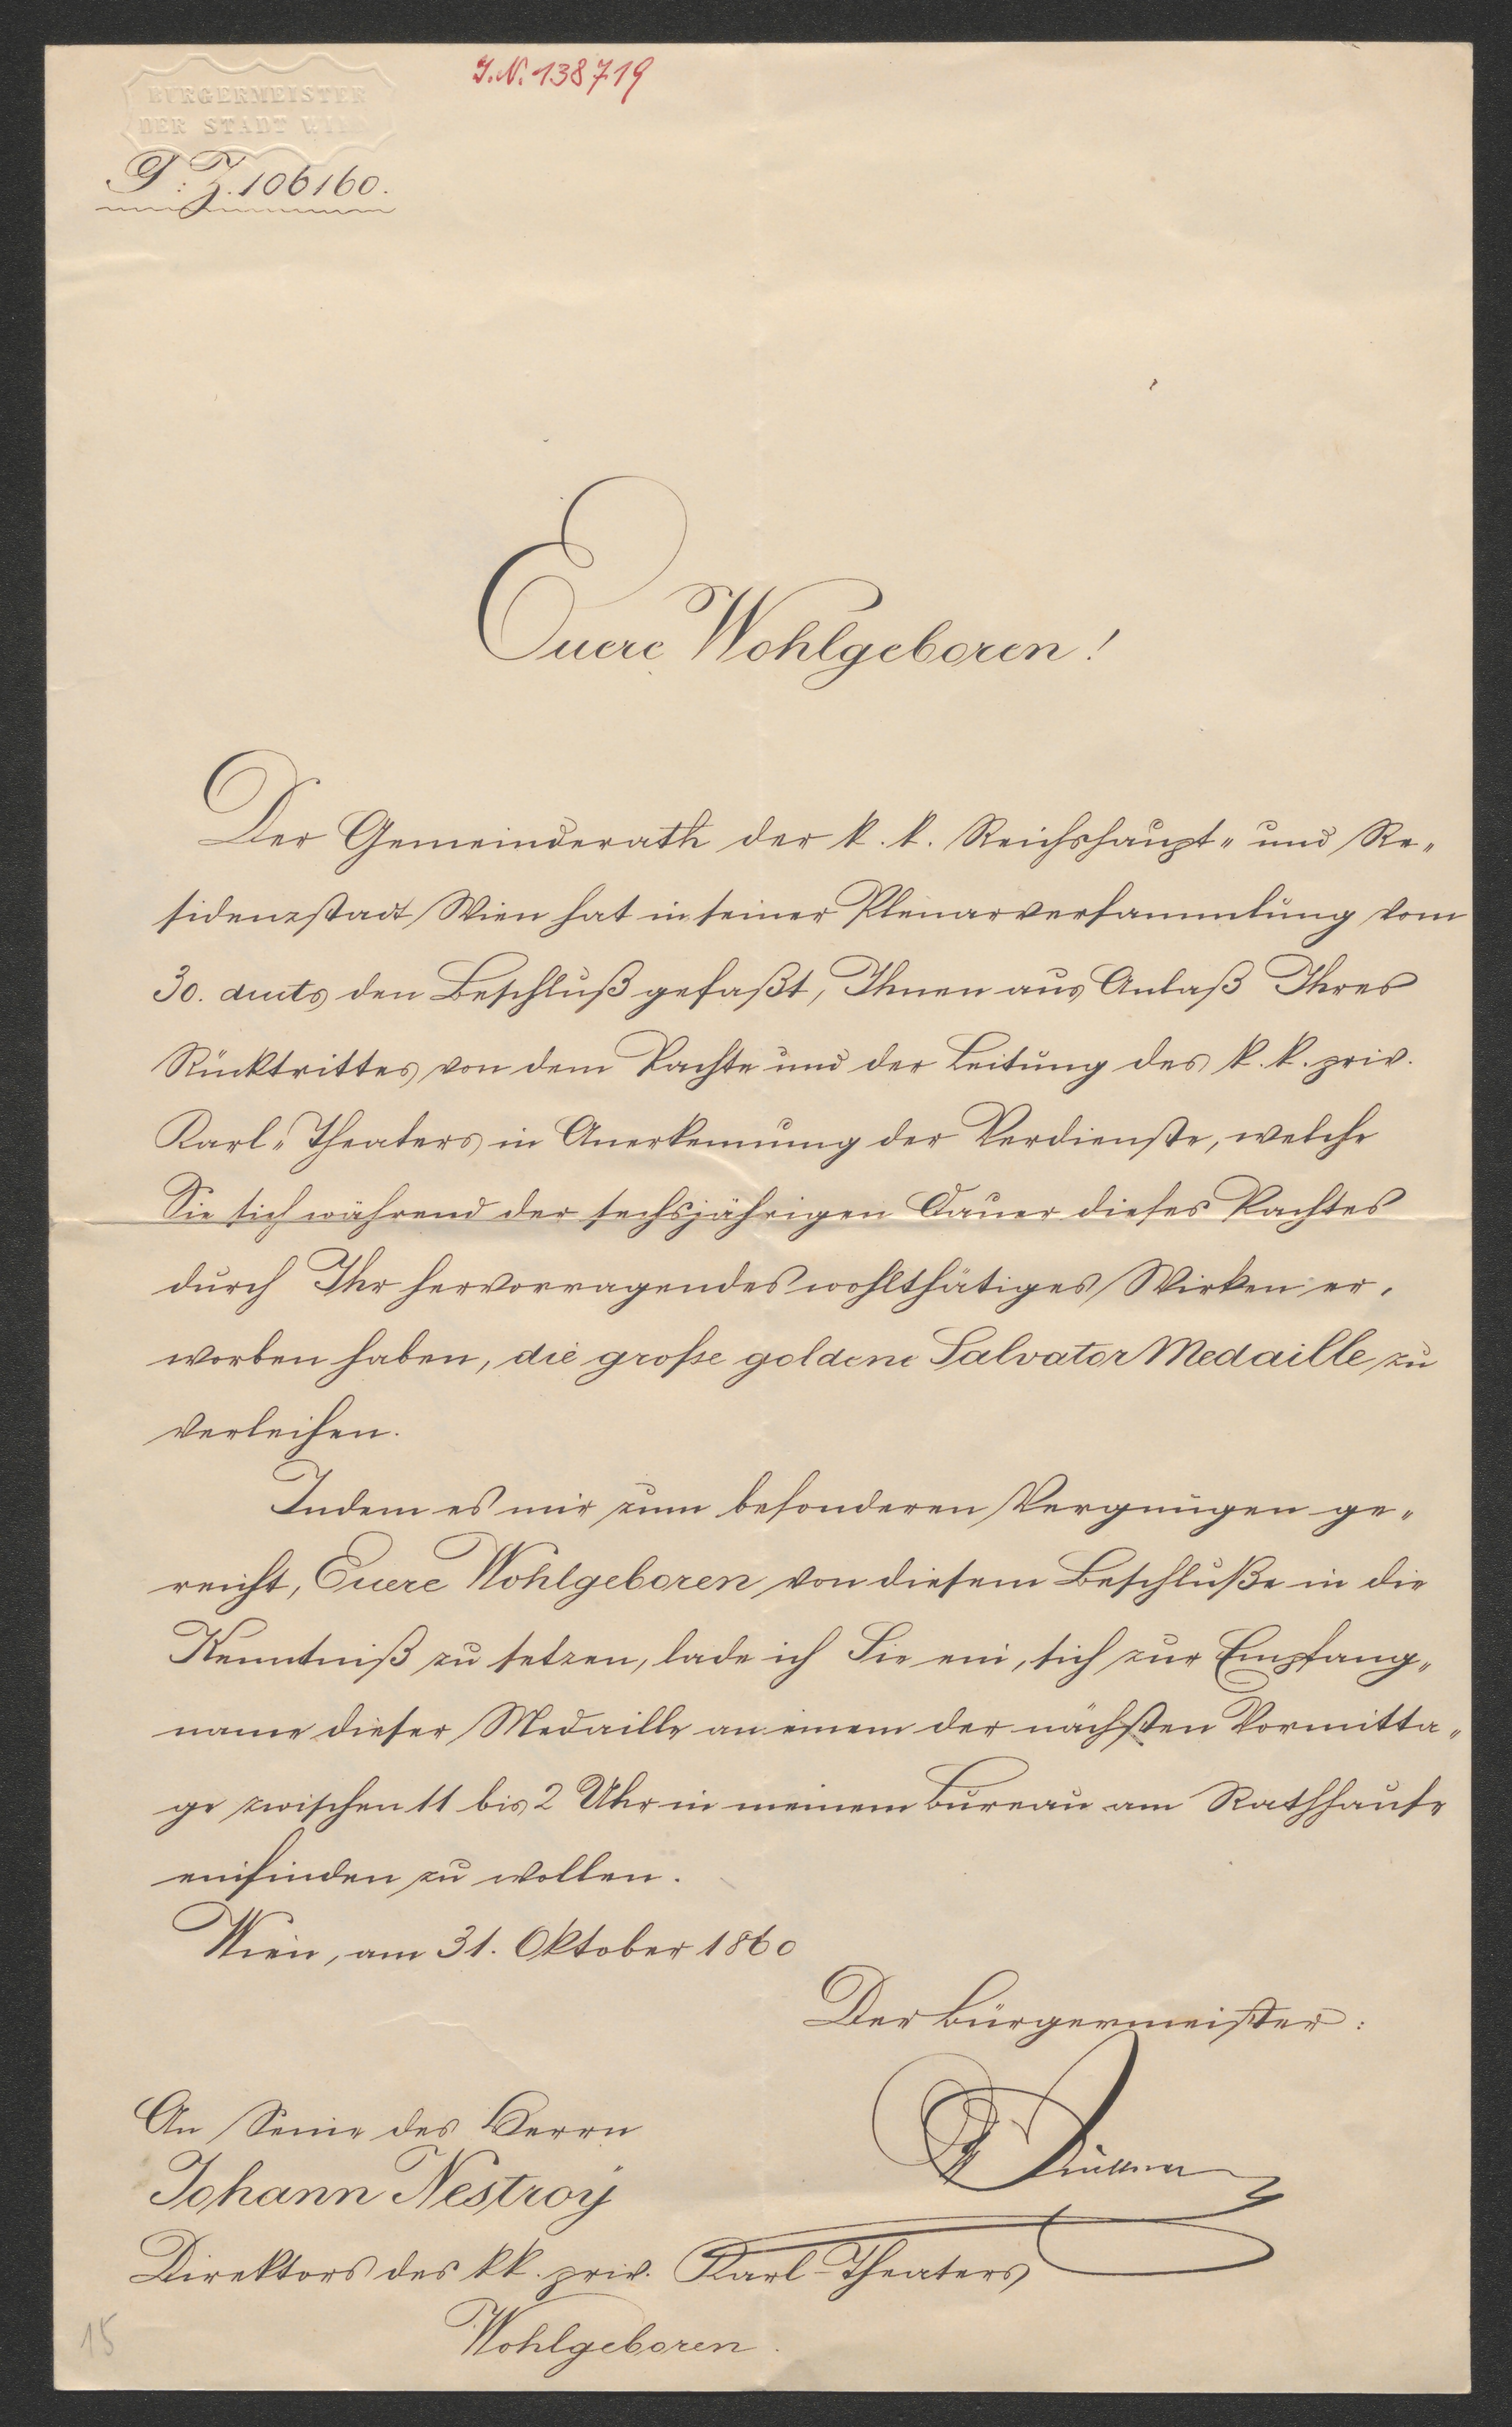 BÜRGERMEISTER
DER STADT WIEN
I.N. 138719
G: Z. 106160.
Euere Wohlgeboren!
Der Gemeinderath der k. k. Reichshaupt- und Re-
sidenzstadt Wien hat in seiner Plenarversammlung vom
30. dmts den Beschluß gefaßt, Ihnen aus Anlaß Ihres
Rücktrittes von dem Pachte und der Leitung des k. k. priv.
Karl-Theaters in Anerkennung der Verdienste, welche
Sie sich während der sechsjährigen Dauer dieses Pachtes
durch Ihr hervorragendes wohlthätiges Wirken er-
worben haben, die große goldene Salvator Medaille zu
verleihen.
Indem es mir zum besonderen Vergnügen ge-
reicht, Euere Wohlgeboren von diesem Beschluße in die
Kenntniß zu setzen, lade ich Sie ein, sich zur Empfang-
name dieser Medaille an einem der nächsten Vormitta-
ge zwischen 11 bis 2 Uhr in meinem Bureau am Rathhause
einfinden zu wollen.
Wien, am 31. Oktober 1860
Der Bürgermeister:
An Seine des Herrn
Johann Nestroy
Direktors des kk. priv. Karl-Theaters
Wohlgeboren.
15